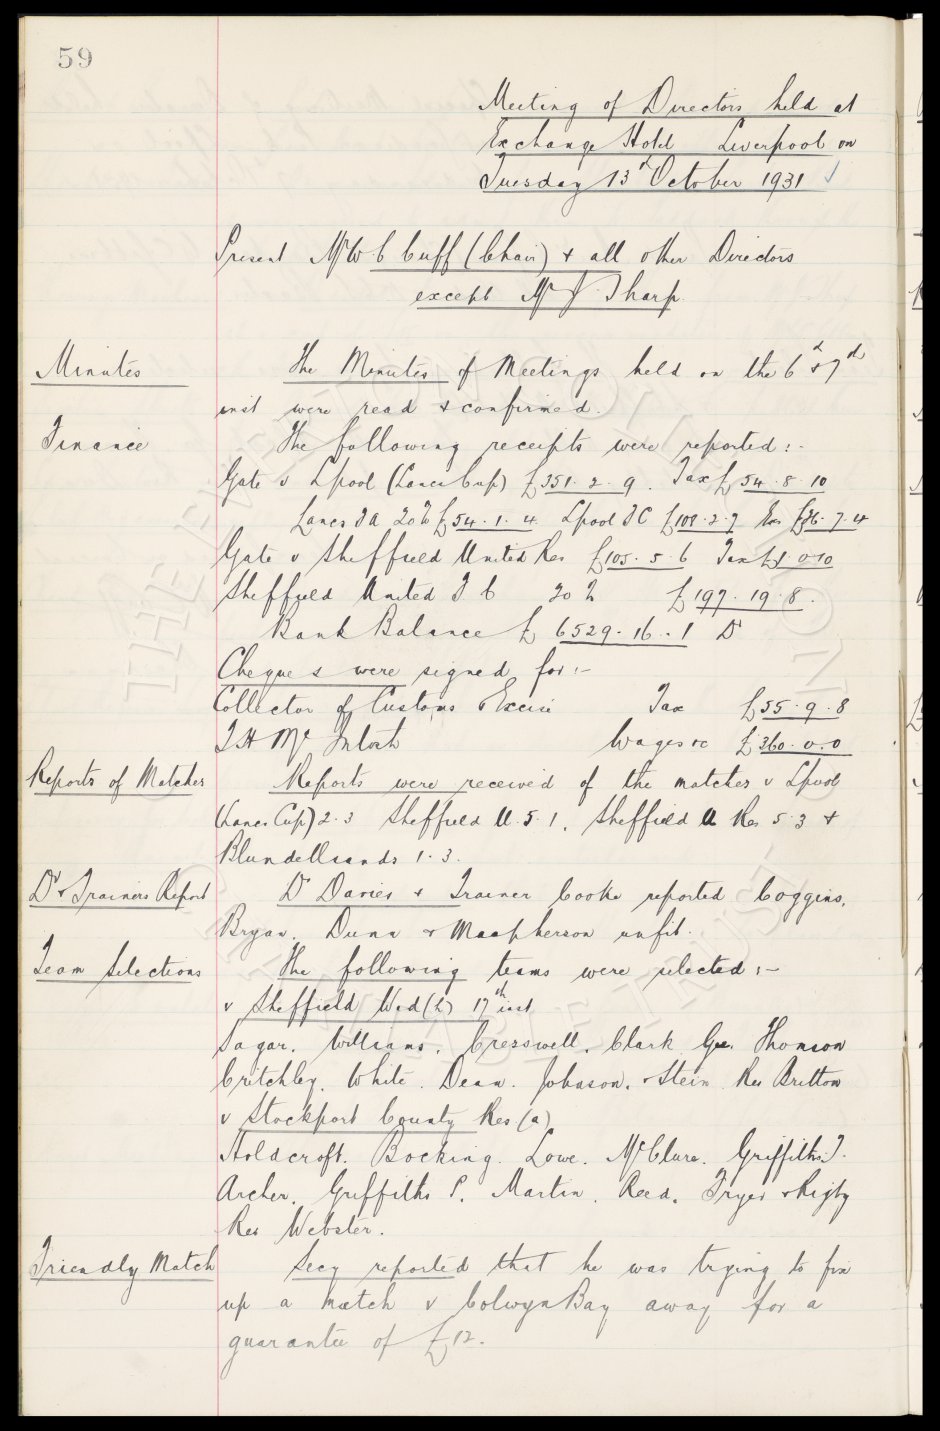 59
Meeting of Directors held at
Exchange Hotel Liverpool on
Tuesday 13th October 1931
Present Mr W C Cuff (Chair) & all other Directors
except Mr J Sharp.
Minutes The Minutes of Meetings held on the 6th & 7th
inst were read & confirmed.
Finance The following receipts were reported:-
Gate v Lpool (Lancs Cup) £351. 2. 9. Tax £54. 8. 10
Lancs FA 20% £54. 1. 4. Lpool FC £108. 2. 7 Exs £26. 7. 4
Gate v Sheffield United Res £105. 5. 6 Tax £1. 0. 10
Sheffield United F C 20% £197. 19. 8.
Bank Balance £6529. 16. 1 Dr
Cheques were signed for:-
Collector of Customs & Excise Tax £55. 9. 8
T H Mc Intosh Wages &c £360. 0. 0
Reports of Matches Reports were received of the matches v Lpool
(Lancs Cup) 2. 3 Sheffield U. 5. 1. Sheffield U Res 5. 3 &
Blundellsands 1. 3.
Dr & Trainers Report Dr Davies & Trainer Cooke reported Coggins,
Bryan, Dunn & Macpherson unfit.
Team Selections The following teams were selected:-
v Sheffield Wed (h) 17th inst
Sagar. Williams. Cresswell. Clark. Gee. Thomson
Critchley. White. Dean. Johnson. & Stein. Res Britton
v Stockport County Res (a)
Holdcroft. Bocking. Lowe. McClure. Griffiths T.
Archer. Griffiths P. Martin. Reed. Fryer & Rigby
Res Webster.
Friendly Match Secy reported that he was trying to fix
up a match v Colwyn Bay away for a
guarantee of £12.